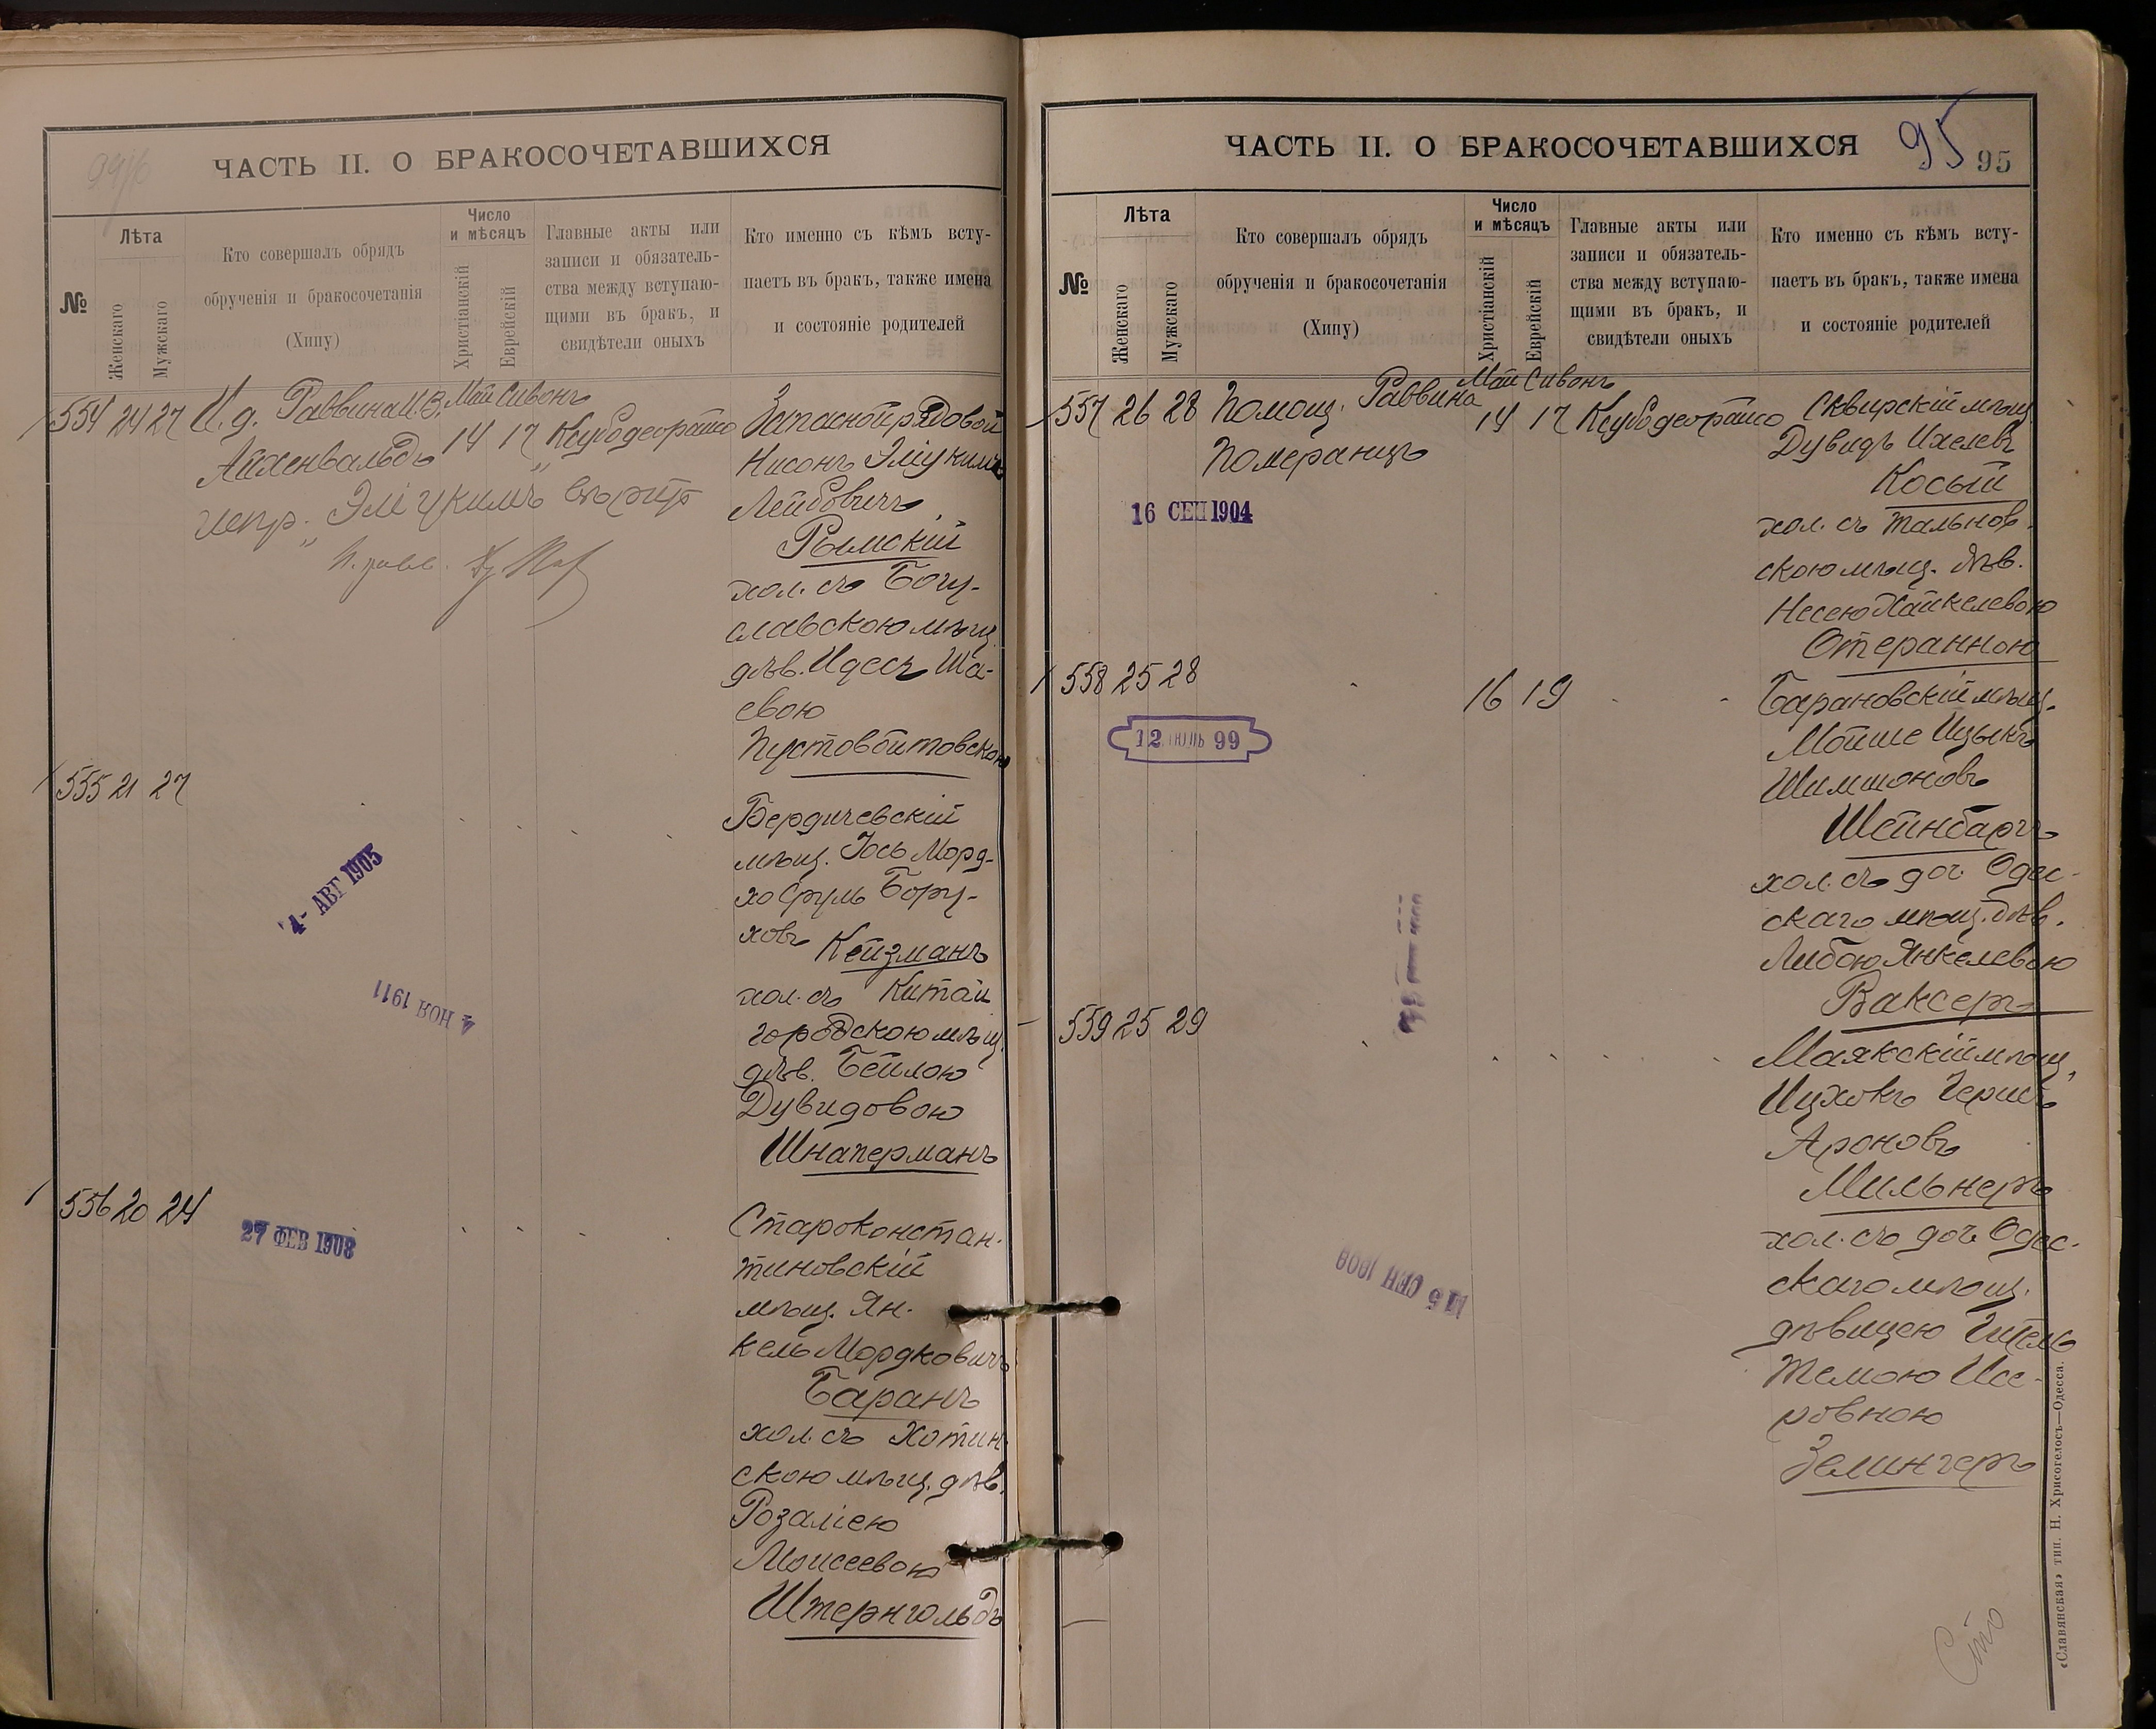 ЧАСТЬ II. О БРАКОСОЧЕТАВШИХСЯ
№
Лѣта
Женскаго
Мужскаго
Кто совершалъ обрядъ
обрученія и бракосочетанія
(Хипу)
Число
и мѣсяцъ
Христіанскій
Еврейскій
Главные акты или
записи и обязатель-
ства между вступаю-
щими въ бракъ, и
свидѣтели оныхъ
Кто именно съ кѣмъ всту-
паетъ въ бракъ, также имена
и состояніе родителей
554 24 27 И. д. Раввина И. В. Май Сивонъ
Айхенвальдъ 14 17 Ксубодеорайсо
испр. „Эліукимъ“ вѣрить
Запасной рядовой
Нисонъ Эліукимъ
Лейбовичъ
Рымскій
хол. съ Богу-
славскою мѣщ.
дѣв. Идесъ Ша-
евою
Пустовойтовскою
555 21 27
4 - АВГ 1905
4 НОЯ 1911
Бердичевскій
мѣщ. Іось Морд-
хо Сруль Бору-
ховъ
Кейзманъ
хол. съ Китай
городскою мѣщ.
дѣв. Бейлою
Дувидовою
Шнаперманъ
556 20 24
27 ФЕВ 1908
Староконстан-
тиновскій
мѣщ. Ян-
кель Мордковичъ
Баранъ
хол. съ Хотин-
скою мѣщ. дѣв.
Розаліею
Моисеевою
Штернгольдъ
ЧАСТЬ II. О БРАКОСОЧЕТАВШИХСЯ
95
95
№
Лѣта
Женскаго
Мужскаго
Кто совершалъ обрядъ
обрученія и бракосочетанія
(Хипу)
Число
и мѣсяцъ
Христіанскій
Еврейскій
Главные акты или
записи и обязатель-
ства между вступаю-
щими въ бракъ, и
свидѣтели оныхъ
Кто именно съ кѣмъ всту-
паетъ въ бракъ, также имена
и состояніе родителей
557 26 28 Помощ. Раввина Май Сивонъ
Померанцъ 14 17 Ксубодеорайсо
16 СЕН 1904
Сквирскій мѣщ.
Дувидъ Ихелевъ
Косый
хол. съ Тальнов-
скою мѣщ. дѣв.
Несею Хайкелевою
Отеранною
558 25 28 16 19
12 ІЮЛЬ 99
Барановскій мѣщ.
Мойше Ицыкъ
Шимшоновъ
Шейнбаргъ
хол. съ доч. Одес-
скаго мѣщ. дѣв.
Либою Янкелевою
Ваксеръ
559 25 29
15 СЕН 1909
Маякскій мѣщ.
Ицхокъ Гершъ
Ароновъ
Мильнеръ
хол. съ доч. Одес-
скаго мѣщ.
дѣвицею Гитель
Темою Исе-
ровною
Зелингеръ
Сто
«Славянская» тип. Н. Хрисогелосъ—Одесса.